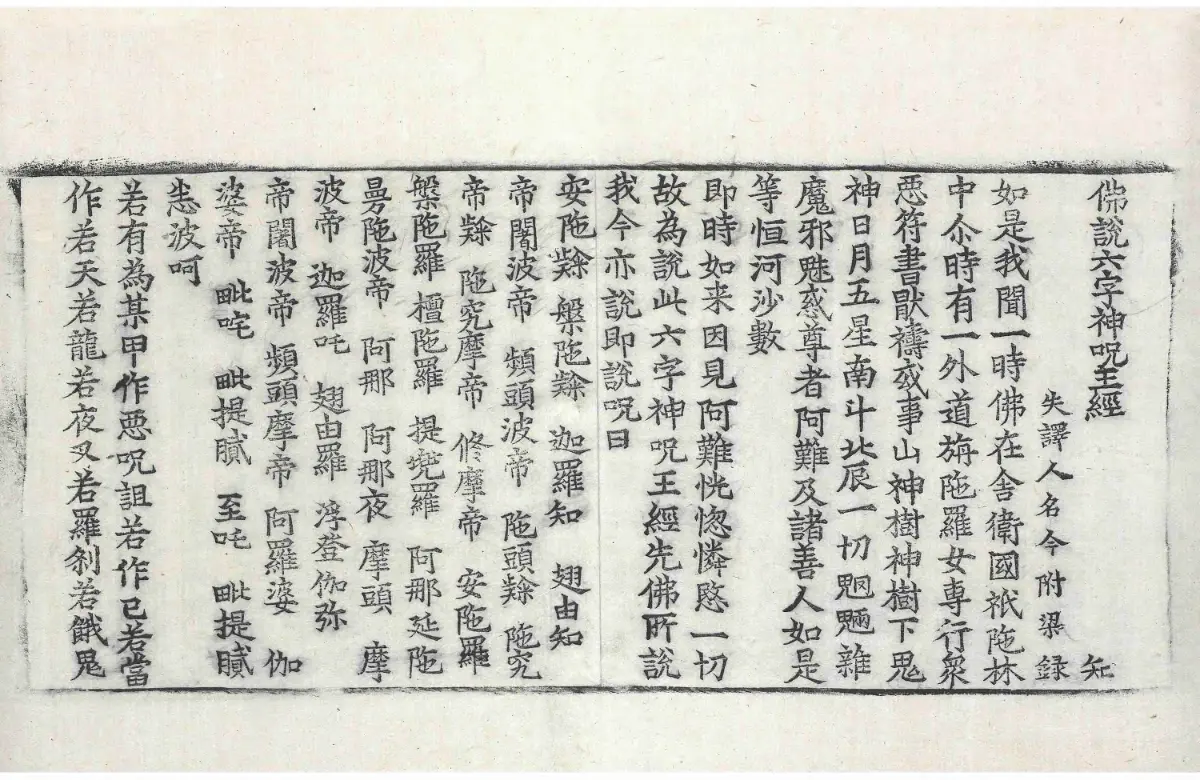 佛說六字神呪王經　知
失譯人名今附梁錄
如是我聞一時佛在舍衛國祇陁林
中尒時有一外道旃陁羅女專行衆
惡符書猒禱或事山神樹神樹下鬼
神日月五星南斗北辰一切魍魎雜
魔邪魅惑尊者阿難及諸善人如是
等恒河沙數
即時如来因見阿難恍惚憐愍一切
故為說此六字神呪王經先佛所說
我今亦說即說呪曰
安陁𪐀 槃陁𪐀 迦羅知 翅由知
帝闍波帝 頻頭波帝 陁頭𪐀 陁究
帝𪐀 陁究摩帝 修摩帝 安陁羅
槃陁羅 檀陁羅 提兠羅 阿那延陁
曼陁波帝 阿那 阿那夜 摩頭 摩
波帝 迦羅吒 翅由羅 浮登伽弥
帝闍波帝 頻頭摩帝 阿羅婆 伽
婆帝 毗咤 毗提膩 至吒 毗提膩
恙波呵
若有為某甲作惡呪詛若作已若當
作若天若龍若夜叉若羅刹若餓鬼